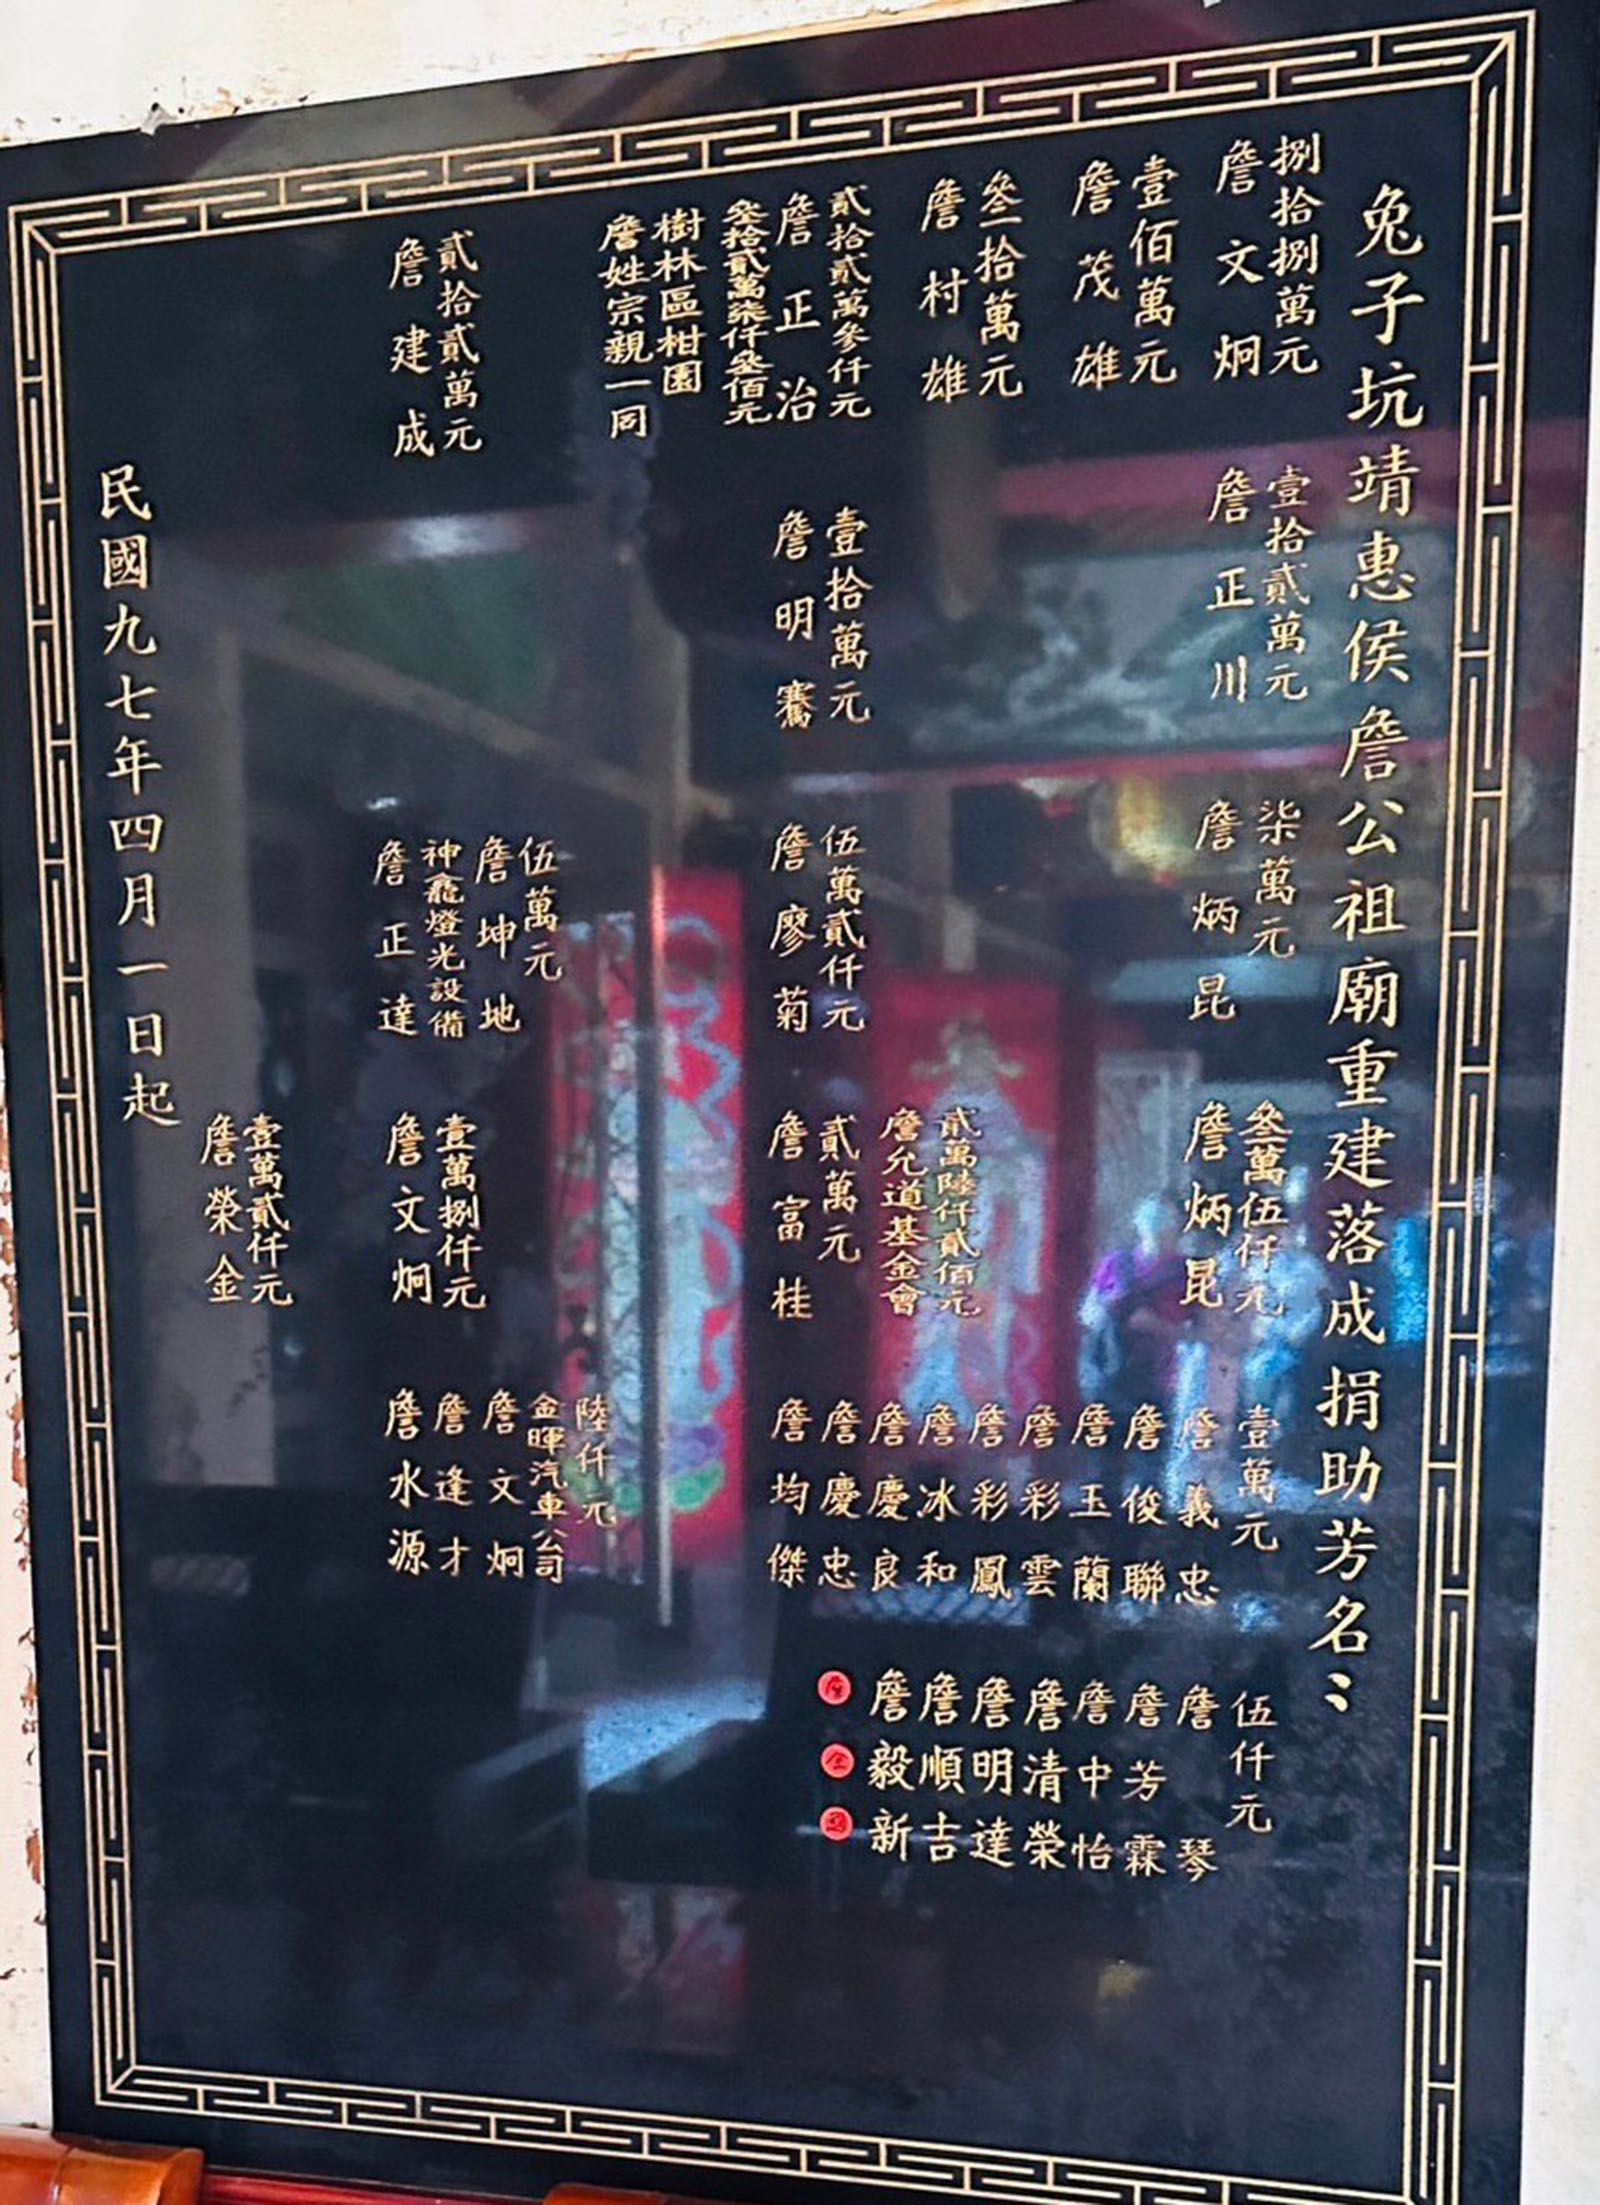 兔子坑靖惠侯詹公祖廟重建落成捐助芳名：
捌拾捌萬元
詹文炯
壹佰萬元
詹茂雄
叁拾萬元
詹村雄
貳拾貳萬參仟元
詹正治
叁拾貳萬柒仟叁佰元
樹林區柑園
詹姓宗親一同
貳拾貳萬元
詹建成
壹拾貳萬元
詹正川
壹拾萬元
詹明騫
柒萬元
詹炳昆
伍萬貳仟元
詹廖菊
伍萬元
詹坤地
神龕燈光設備
詹正達
叁萬伍仟元
詹炳昆
貳萬陸仟貳佰元
詹允道基金會
貳萬元
詹富桂
壹萬捌仟元
詹文炯
壹萬貳仟元
詹榮金
壹萬元
詹義忠
詹俊聯
詹玉蘭
詹彩雲
詹彩鳳
詹冰和
詹慶良
詹慶忠
詹均傑
陸仟元
金暉汽車公司
詹文炯
詹逢才
詹水源
伍仟元
詹琴
詹芳霖
詹中怡
詹清榮
詹明達
詹順吉
詹毅新
民國九七年四月一日起